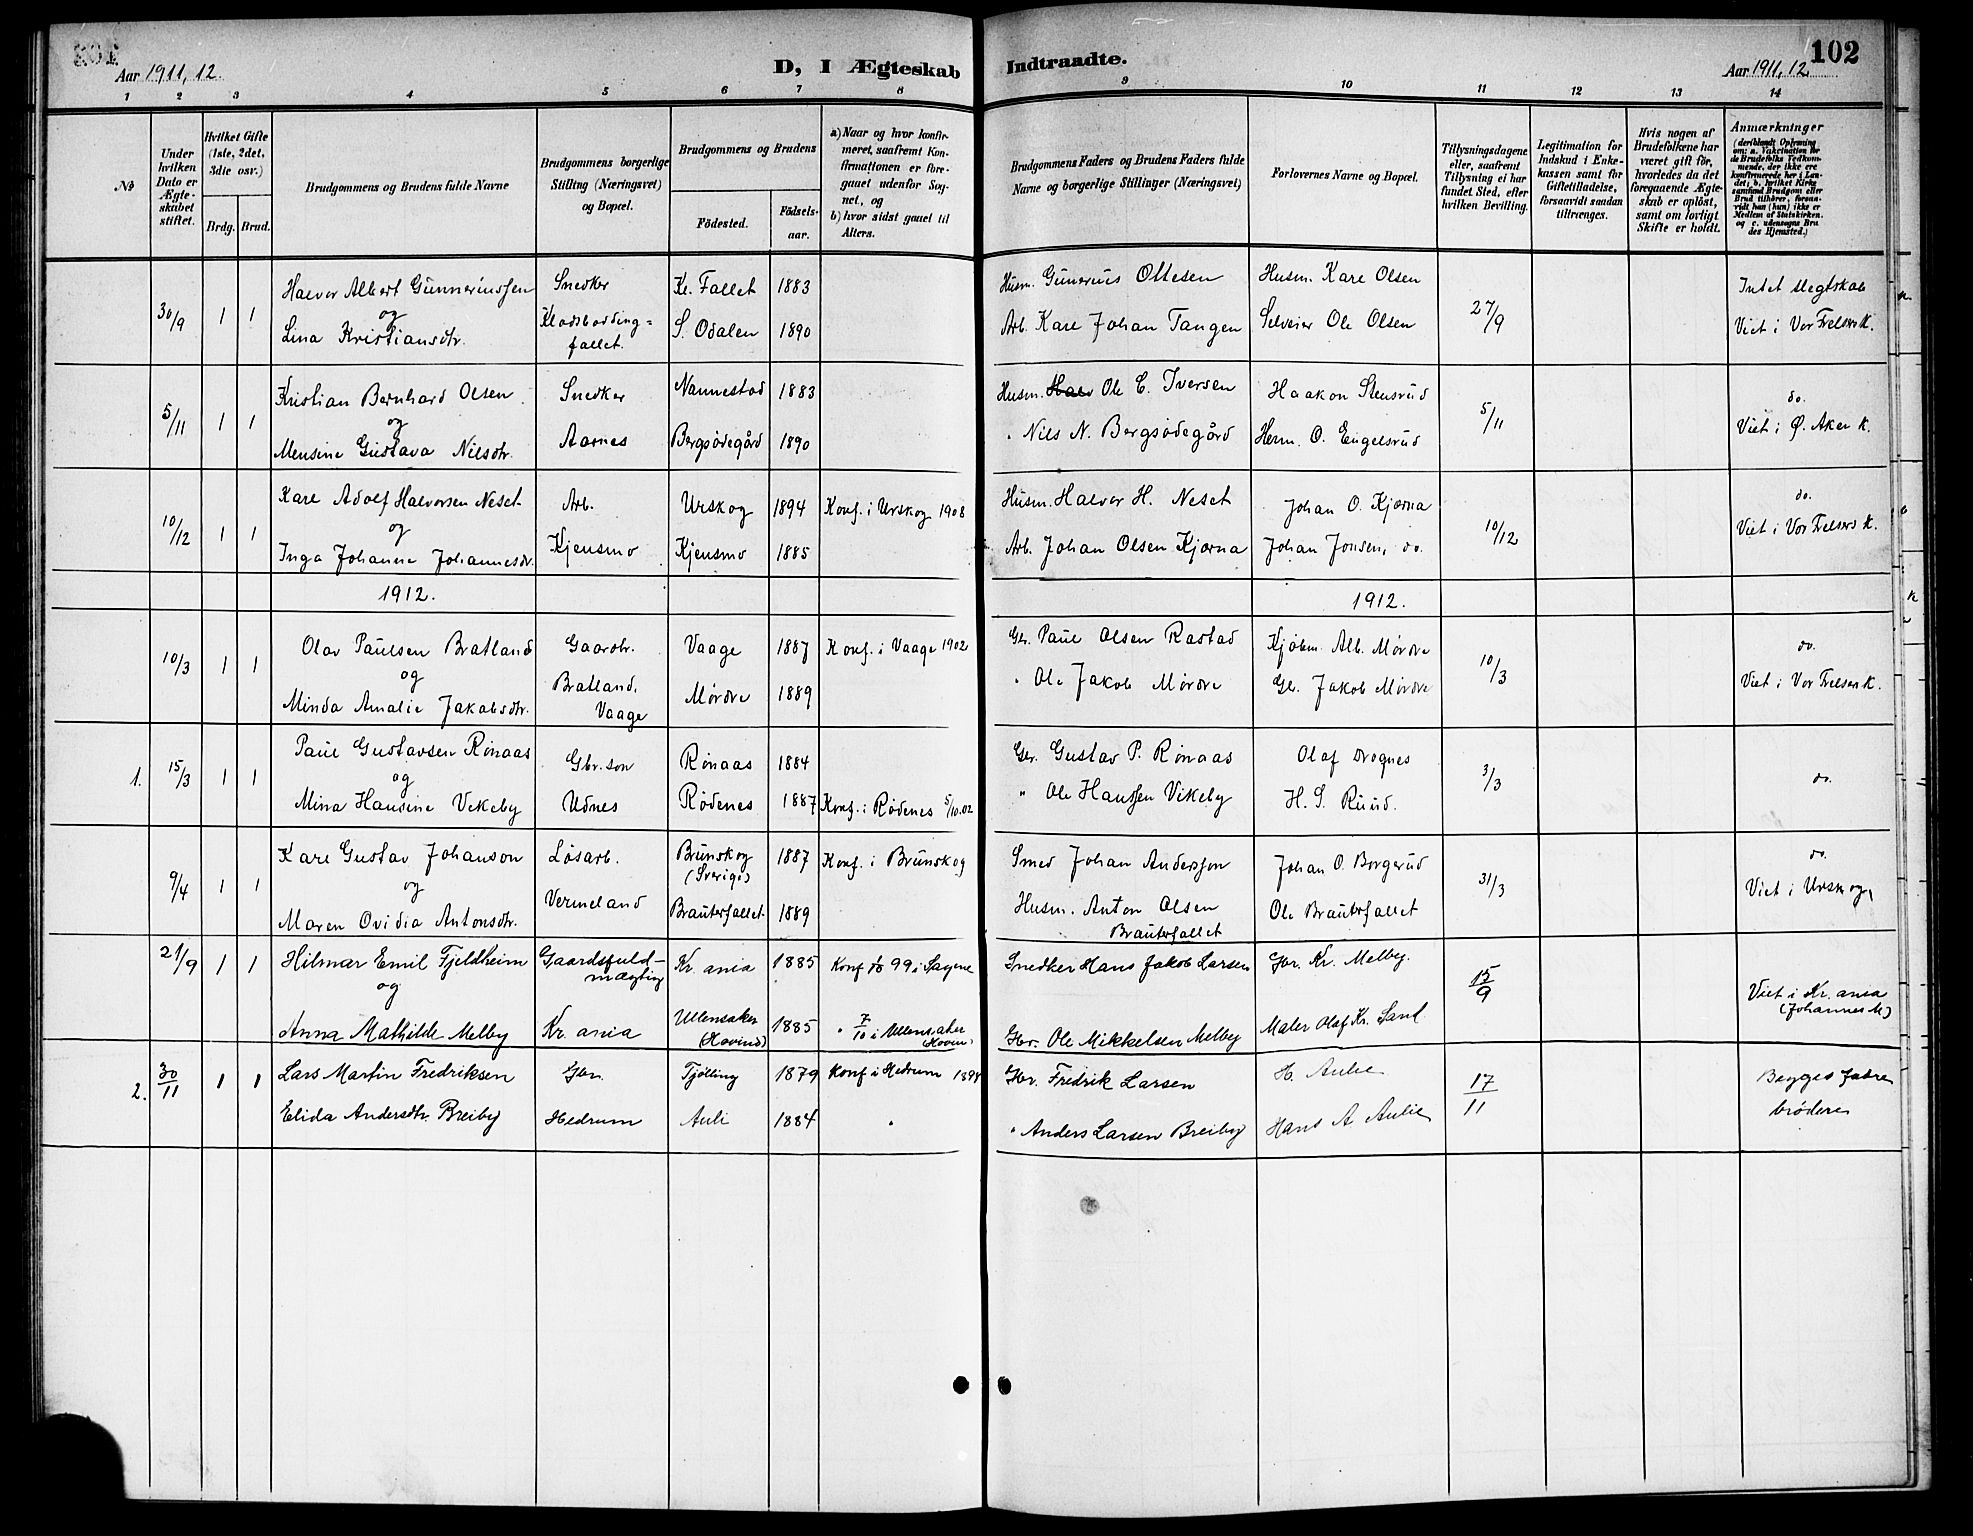 Aar 1911, 12.
D, I Ægteskab Indtraadte.
Aar 1911, 12.
102
1 2 3 4 5 6 7 8 9 10 11 12 13 14
No
Under hvilken Dato er Ægteskabet stiftet.
Hvilket Gifte (1ste, 2det, 3die osv.)
Brdg. Brud.
Brudgommens og Brudens fulde Navne
Brudgommens borgerlige Stilling (Næringsvei) og Bopæl.
Brudgommens og Brudens
Fødested.
Fødselsaar.
a) Naar og hvor konfirmeret, saafremt Konfirmationen er foregaaet udenfor Sognet, og
b) hvor sidst gaaet til Alters.
Brudgommens Faders og Brudens Faders fulde Navne og borgerlige Stillinger (Næringsvei)
Forlovernes Navne og Bopæl.
Tillysningsdagene eller, saafremt Tillysning ei har fundet Sted, efter hvilken Bevilling.
Legitimation for Indskud i Enkekassen samt for Giftetilladelse, forsaavidt saadan tiltrænges.
Hvis nogen af Brudefolkene har været gift før, hvorledes da det foregaaende Ægteskab er opløst, samt om lovligt Skifte er holdt.
Anmærkninger (deriblandt Oplysning om: a. Vaksination for de Brudefolks Vedkommende, der ikke ere konfirmerede her i Landet; b. hvilket Kirkesamfund Brudgom eller Brud tilhører, forsaavidt han (hun) ikke er Medlem af Statskirken. og c. udensogns Brudes Hjemsted.)
30/9 1 1 Halvor Albert Gunneriussen Snedker Kl. Fallet 1883 Husm. Gunerius Ottesen Husm. Karl Olsen 27/9 Intet slegtskab
og Klodsbodding=
Lina Kristiansdtr. fallet. S. Odalen 1890 Arb. Karl Johan Tangen Selveier Ole Olsen Viet i Vor Frelsers K.
5/11 1 1 Kristian Bernhard Olsen Snedker Nannestad 1883 Husm. Ole C. Iversen Haakon Stensrud 5/11 do.
og
Mensine Gustava Nilsdtr. Aarnes Bergsødegård 1890 " Nils N. Bergsødegård Herm. O. Engelsrud Viet i Ø. Aker K.
10/12 1 1 Karl Adolf Halvorsen Neset Arb. Urskog 1894 Konf. i Urskog 1908 Husm. Halvor H. Neset Johan O. Kjørna 10/12 do.
og
Inga Johanne Johannesdr. Kjensmo Kjensmo 1885 Arb. Johan Olsen Kjørna Johan Jonsen, do. Viet i Vor Frelsers K.
1912. 1912.
10/3 1 1 Olav Paulsen Bratland Gaardbr. Vaage 1887 Konf. i Vaage 1902 Gbr. Paul Olsen Rastad Kjøbm. Alb. Mørdre 10/3 do.
og Bratland,
Minda Amalie Jakobsdtr. Vaage Mørdre 1889 " Ole Jakob Mørdre Gbr. Jakob Mørdre Viet i Vor Frelsers K.
1. 15/3 1 1 Paul Gustavsen Rønaas Gbr. søn Rønaas 1884 Gbr. Gustav P. Rønaas Olaf Drognes 3/3 do.
og
Mina Hansine Vikeby Udnes Rødenes 1887 Konf. i Rødenes 5/10.02 " Ole Hanssen Vikeby H. S. Ruud.
9/4 1 1 Karl Gustav Johanson Løsarb. Brunskog (Sverige) 1887 Konf. i Brunskog Smed Johan Andersson Johan O. Borgerud 31/3 do.
og
Maren Ovidia Antonsdtr. Vermeland Brauterfallet 1889 Husm. Anton Olsen Brauterfallet Ole Brauterfallet Viet i Urskog,
21/9 1 1 Hilmar Emil Fjeldheim Gaardsfuldmægtig Kr. ania 1885 Konf. 99 i Sagene Snedker Hans Jakob Larsen Gbr. Kr. Melby. 15/9
og
Anna Mathilde Melby Kr. ania Ullensaker (Hovind) 1885 " 7/10 i Ullensaker (Hovin) Gbr. Ole Mikkelsen Melby Maler Olaf Kr. Sand Viet i Kr. ania (Johannes M)
2. 30/11 1 1 Lars Martin Fredriksen Gbr. Tjølling 1879 Konf i Hedrum 1894 Gbr. Fredrik Larsen H. Aulie 17/11 Begges fædre
Elida Andersdtr. Breiby Hedrum Auli 1884 " " Anders Larsen Breiby Hans A Aulie brødre